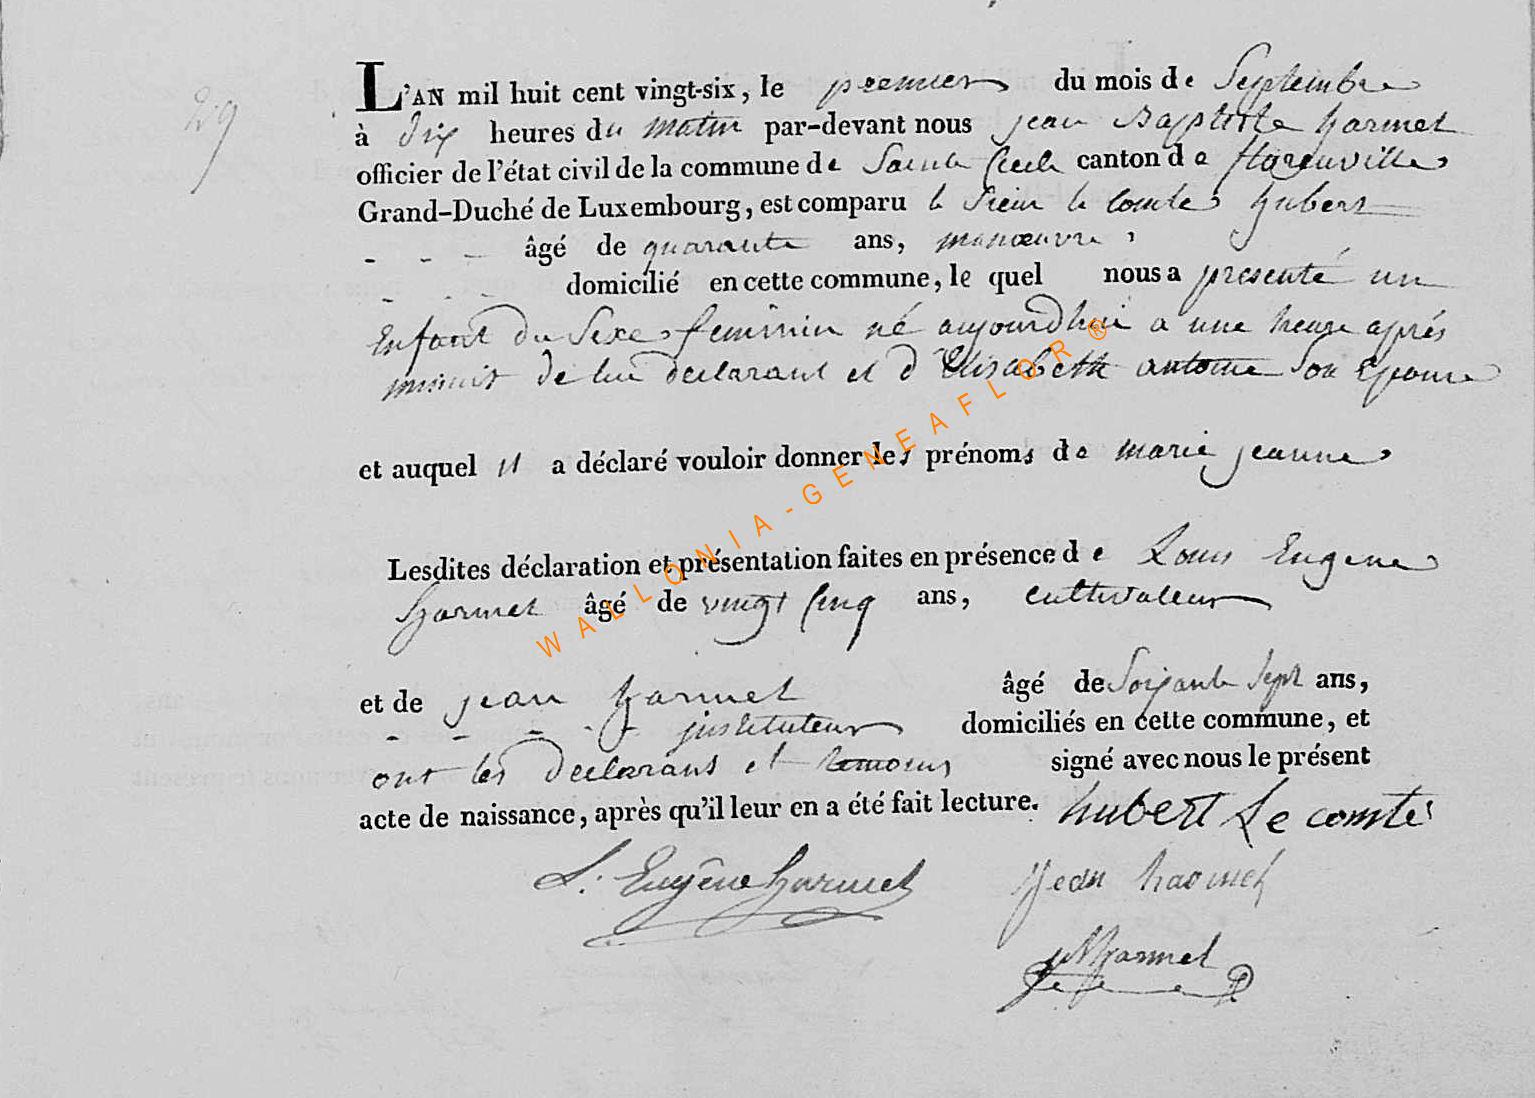 29
L'AN mil huit cent vingt-six, le premier du mois de Septembre
à dix heures du matin par-devant nous jean Baptiste harmel
officier de l'état civil de la commune de Sainte Cecile canton de florenville
Grand-Duché de Luxembourg, est comparu le Sieur le Comte hubert
- - - âgé de quarante ans, manœuvre,
- - - domicilié en cette commune, le quel nous a presenté un
Enfant du Sexe feminin né aujourdhui a une heure aprés
minuit de lui declarant et d'Elisabeth antoine Son Epouse
et auquel il a déclaré vouloir donner les prénoms de marie jeanne
Lesdites déclaration et présentation faites en présence de Louis Eugene
harmel âgé de vingt Cinq ans, cultivateur
et de jean harmel âgé de Soixante Sept ans,
- - - - - instituteur domiciliés en cette commune, et
ont les declarans et temoins signé avec nous le présent
acte de naissance, après qu'il leur en a été fait lecture. hubert Le comte
L. Eugêne harmel jean harmel
harmel
WALLONIA-GENEAFLOR®